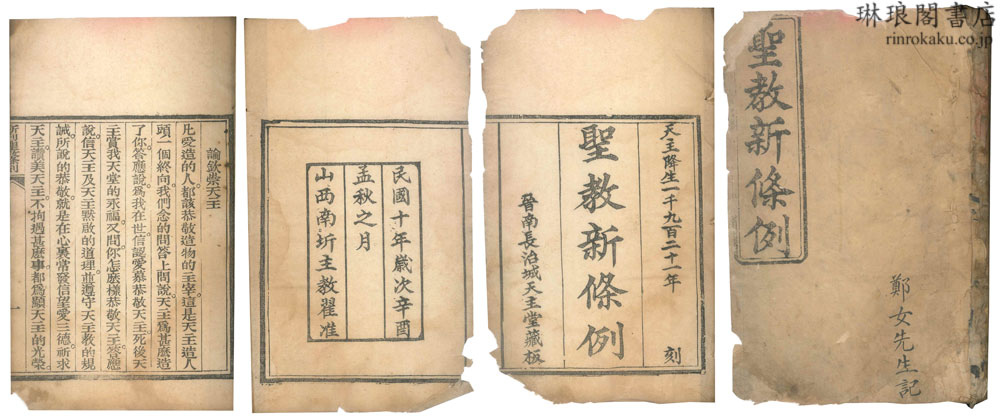 琳琅閣書店
rinrokaku.co.jp
聖教新條例
鄭女先生記
天主降生一千九百二十一年 刻
聖教新條例
晉南長治城天主堂藏板
民國十年歲次辛酉
孟秋之月
山西南圻主教翟准
論欽崇天主
凡受造的人。都該恭敬造物的主宰。這是天主造人
頭一個終向。我們念的問答上問說。天主爲甚麼造
了你。答應說。爲我在世信認愛慕恭敬天主。死後天
主賞我天堂的永福。又問你怎麼樣恭敬天主。答應
說。信天主及天主默啟的道理。並遵守天主教的規
誡。所說的恭敬。就是在心裏常發信望愛三德。祈求
天主。讚美天主。不拘遇甚麼事。都爲顯天主的光榮
一